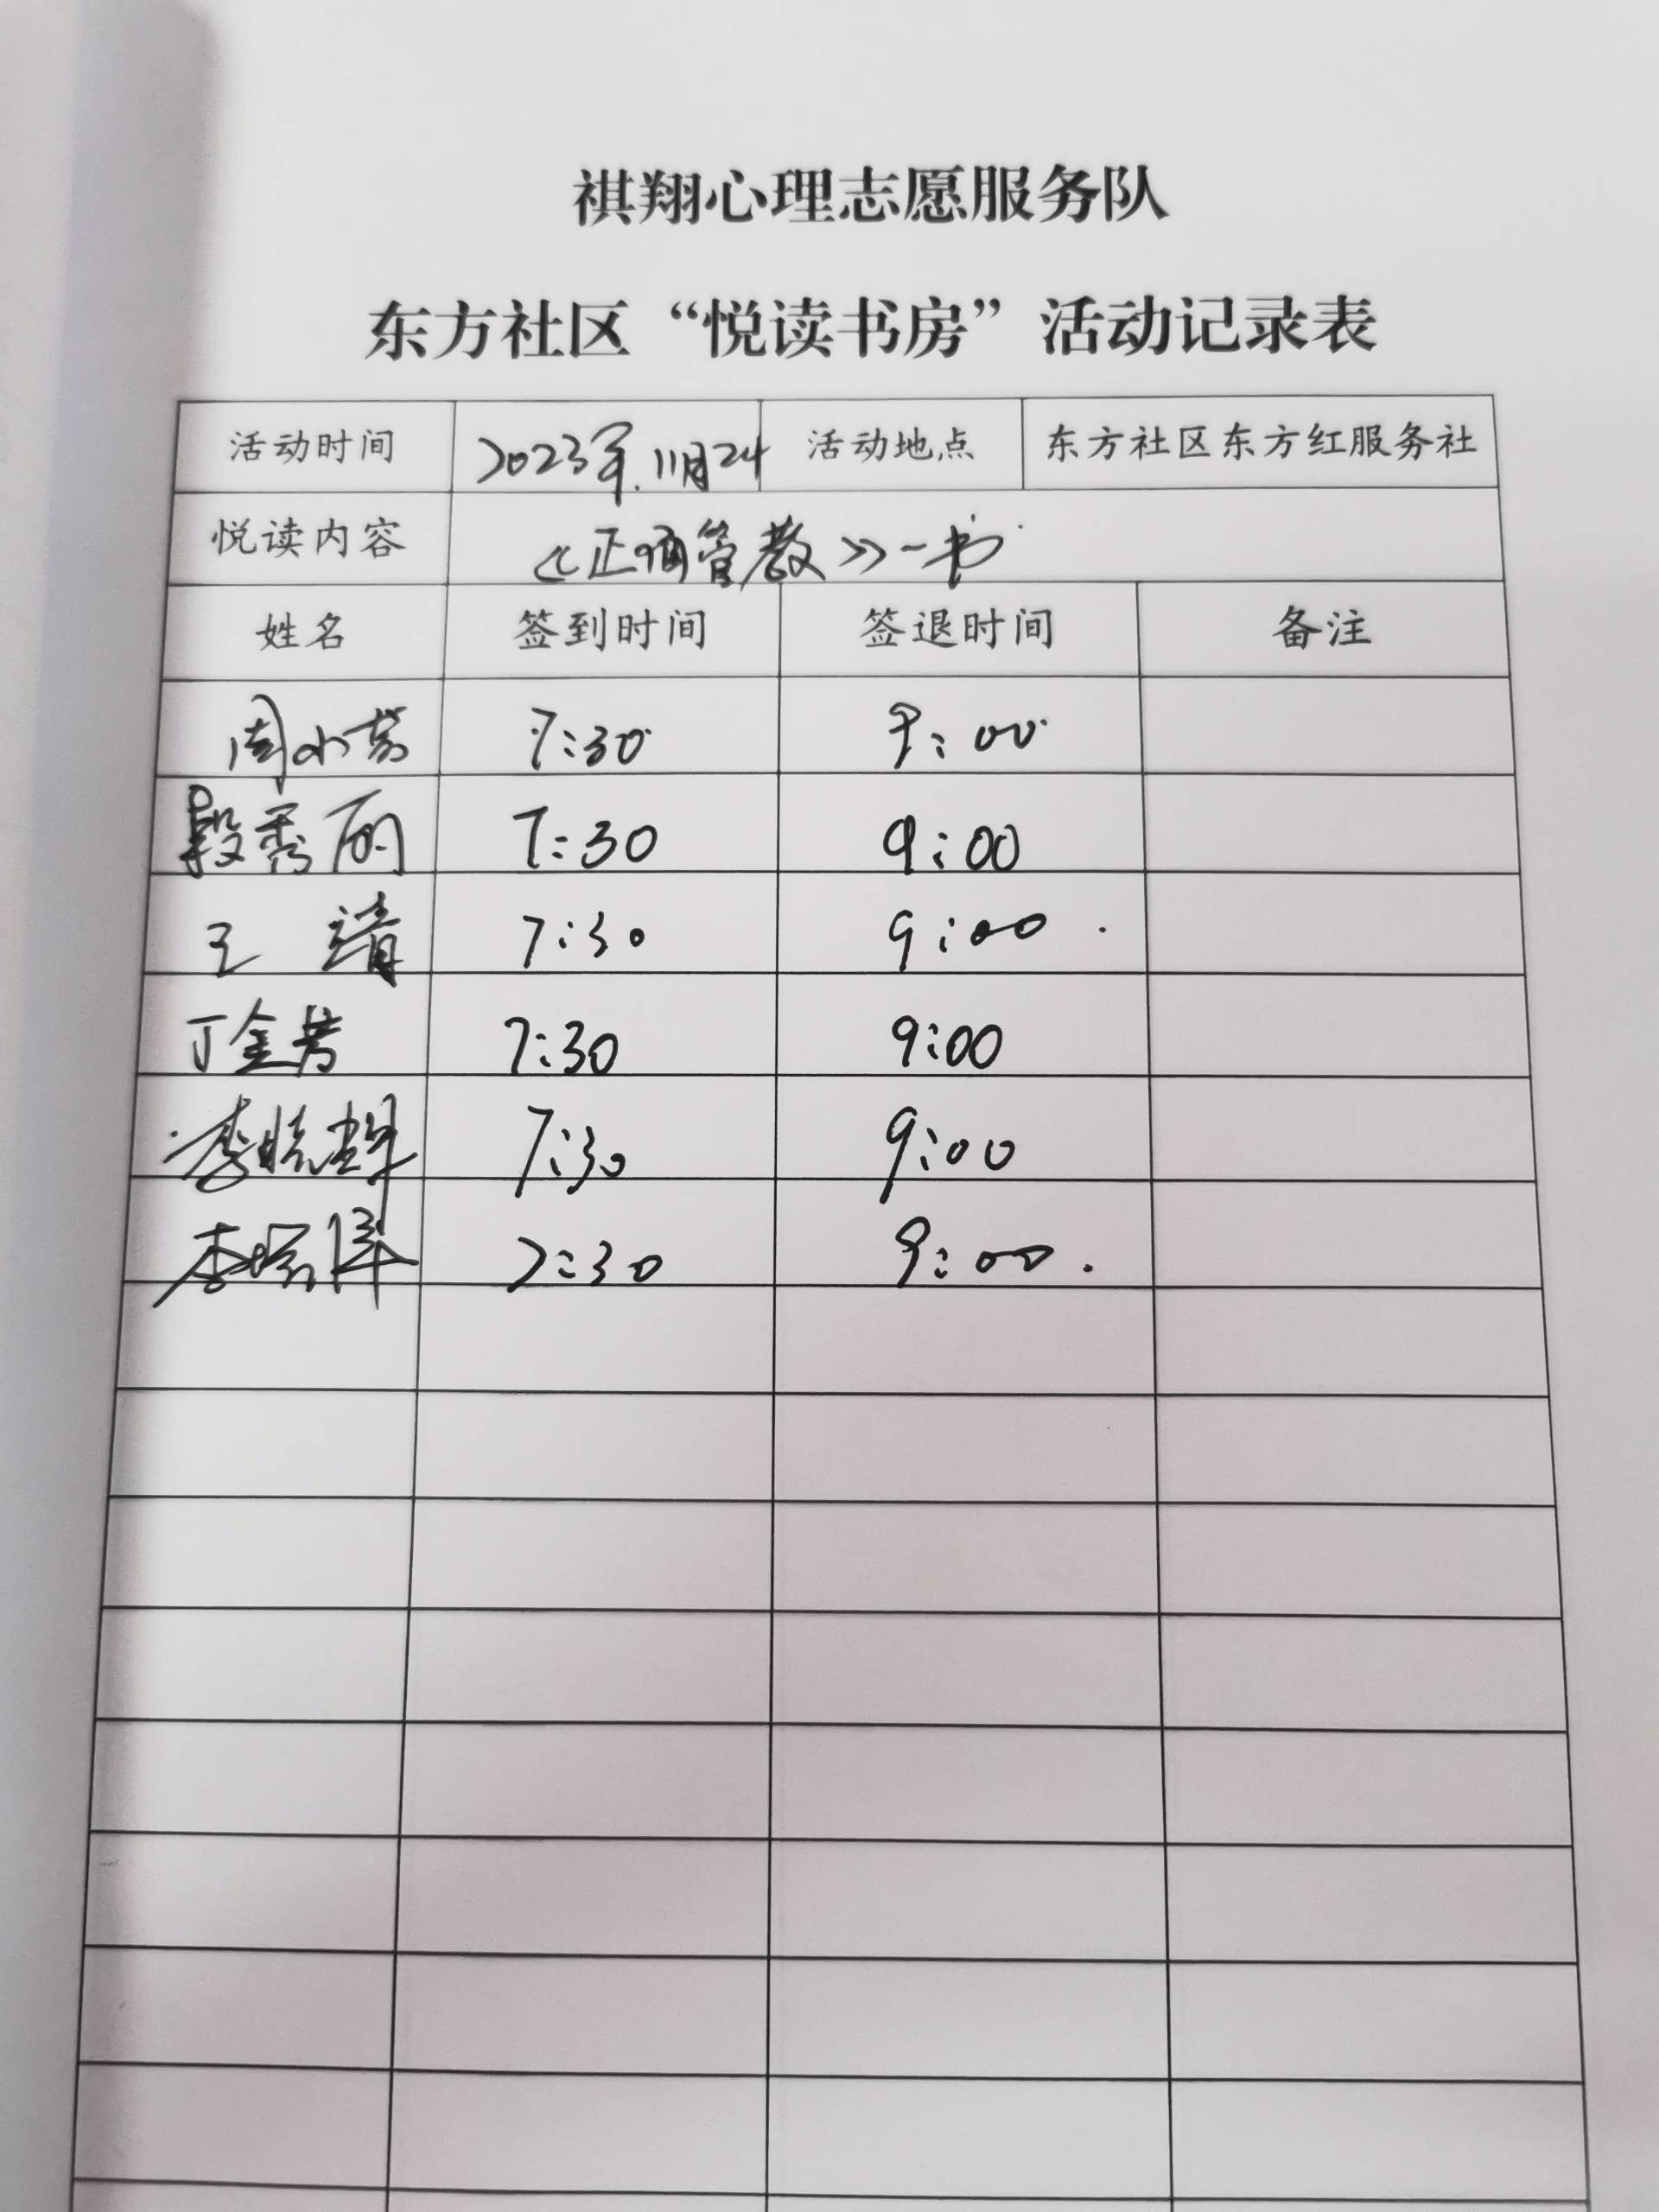 祺翔心理志愿服务队
东方社区“悦读书房”活动记录表
活动时间 2023年.11月24 活动地点 东方社区东方红服务社
悦读内容 《正面管教》一书
姓名 签到时间 签退时间 备注
周小芳 7:30 9:00
段秀丽 7:30 9:00
王靖 7:30 9:00
丁金芳 7:30 9:00
李晓辉 7:30 9:00
李 7:30 9:00